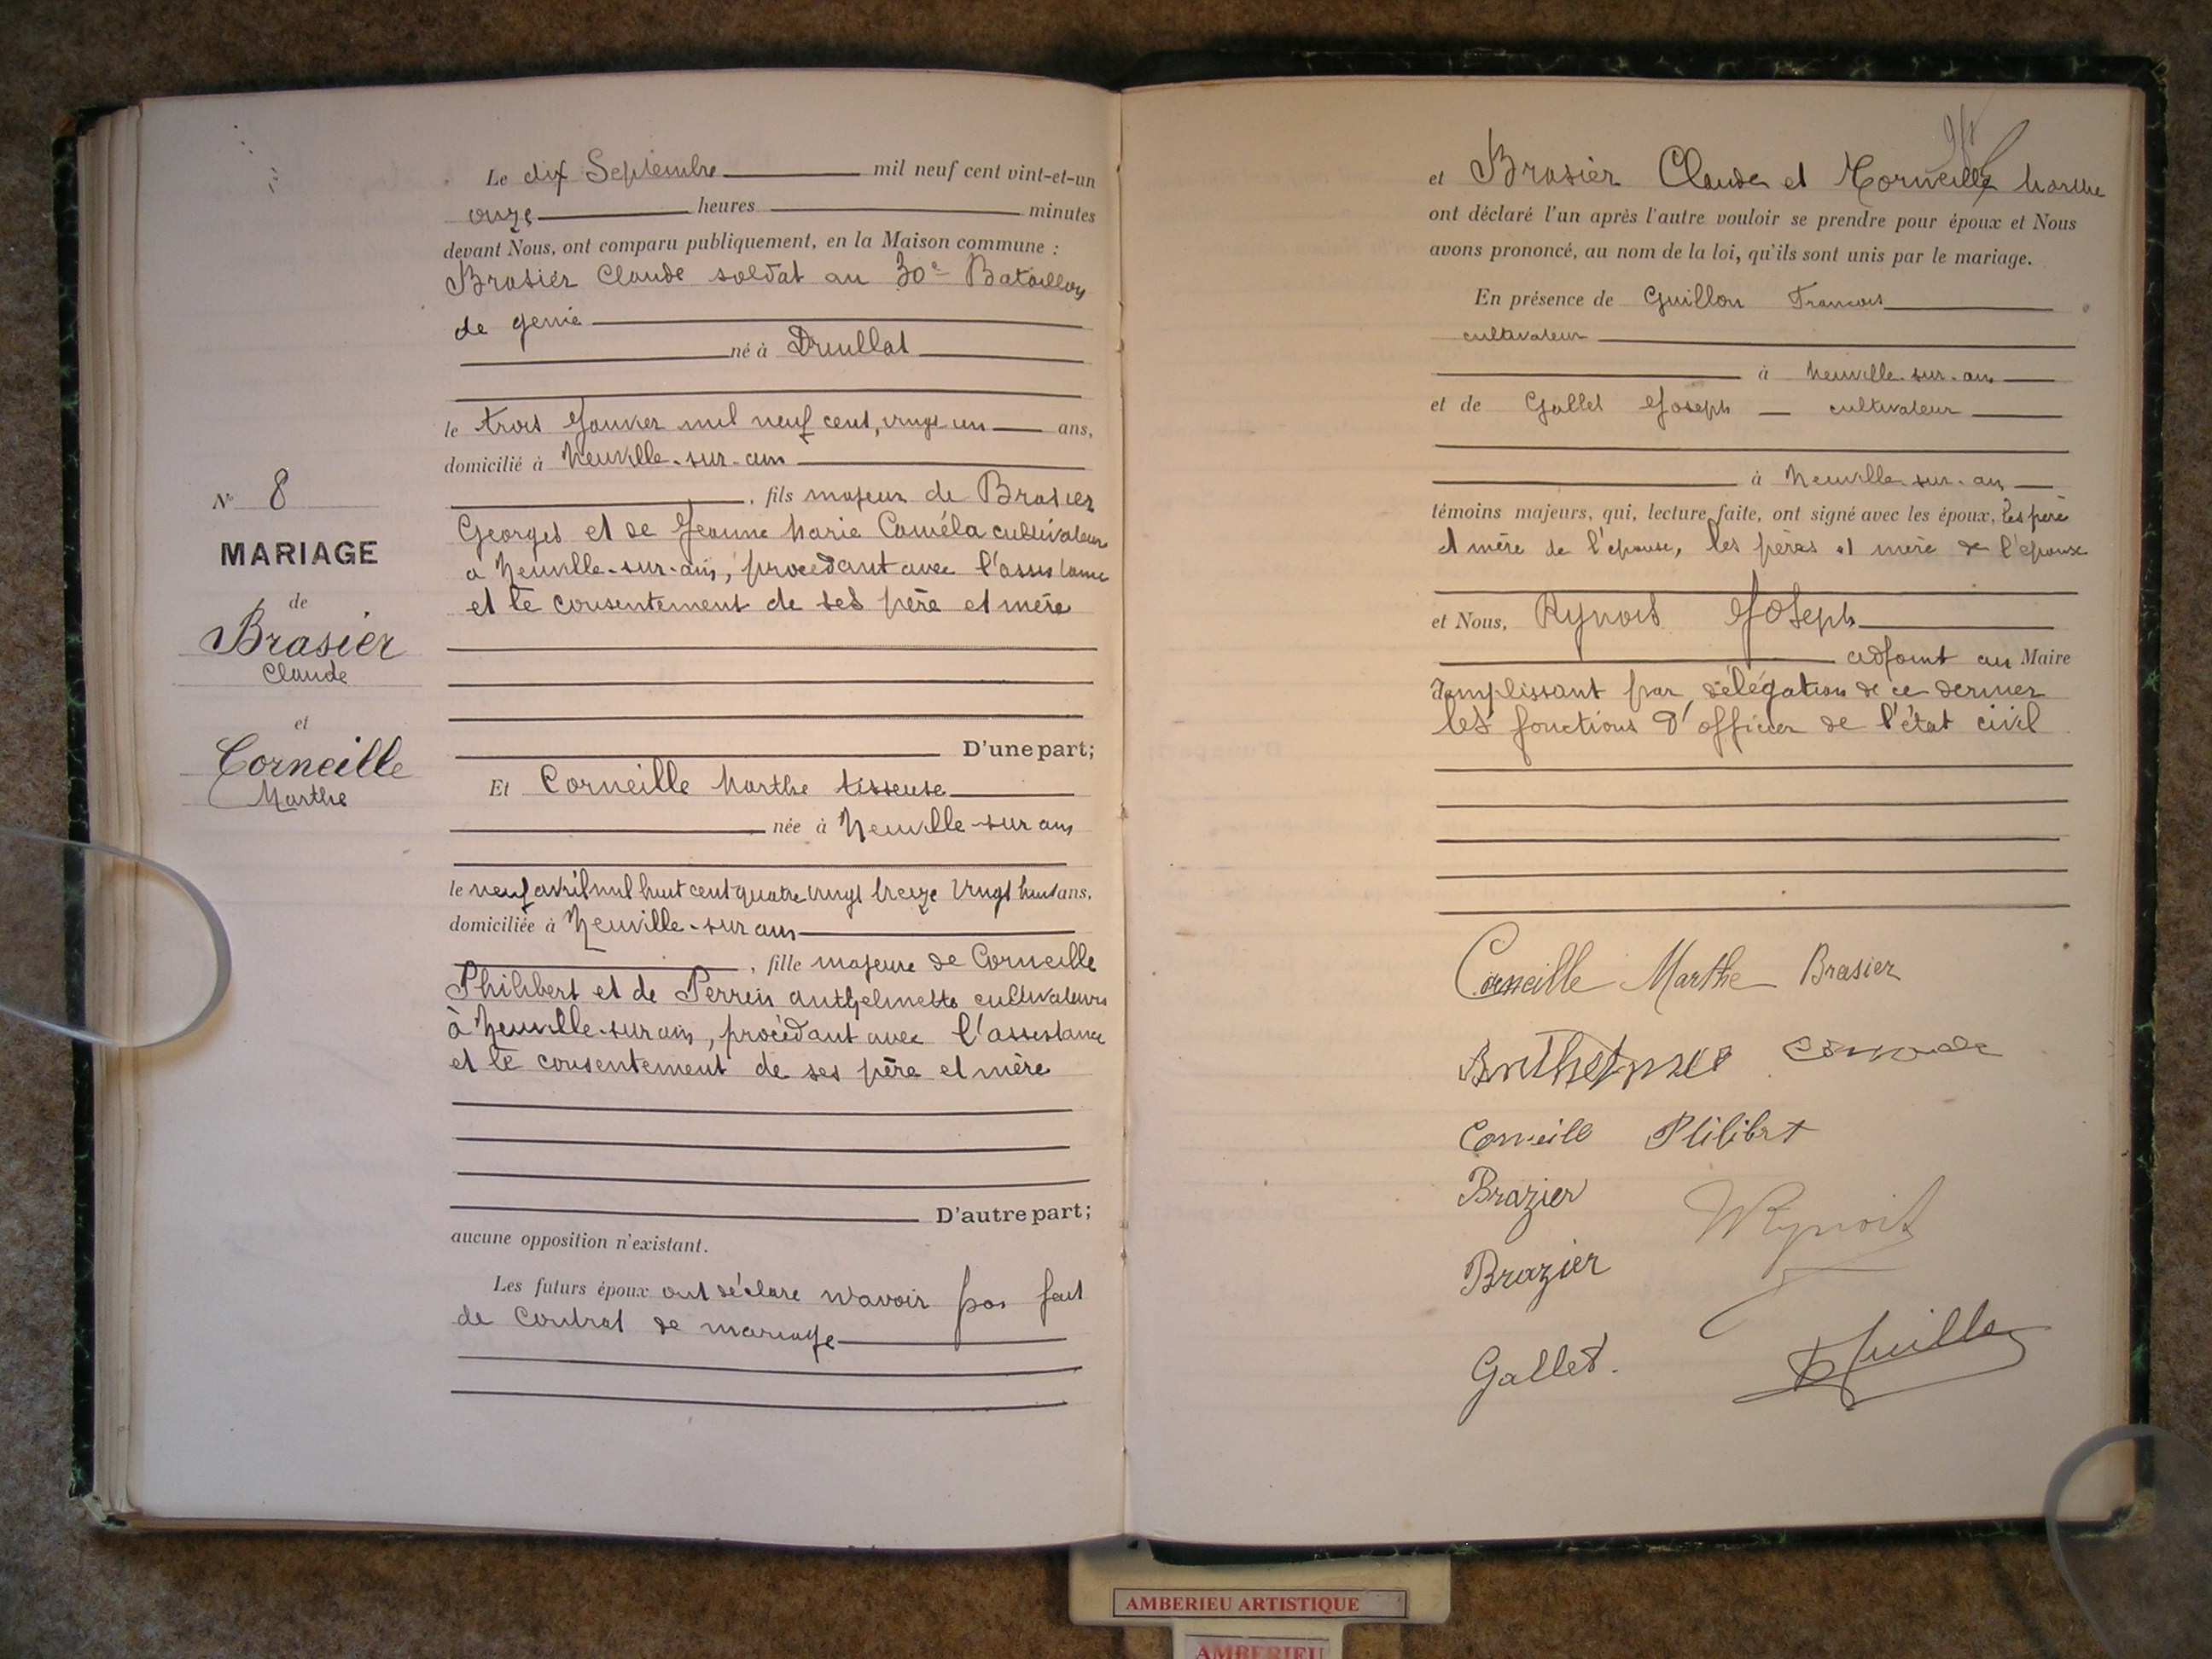 Le dix Septembre mil neuf cent vint-et-un
onze heures minutes
devant Nous, ont comparu publiquement, en la Maison commune :
Brasier Claude soldat au 30e Bataillon
de genie
né à Druillat
le trois Janvier mil neuf cent, vingt un ans,
domicilié à Neuville-sur-ain
, fils majeur de Brasier
Georges et de Jeanne Marie Caméla cultivateurs
a Neuville-sur-ain, procédant avec l'assistance
et le consentement de ses père et mère
N° 8
MARIAGE
de
Brasier
Claude
et
Corneille
Marthe
D'une part;
Et Corneille Marthe tisseuse
née à Neuville-sur ain
le neuf avril mil huit cent quatre vingt treize vingt huit ans.
domiciliée à Neuville-sur ain
, fille majeure de Corneille
Philibert et de Perrin anthelmette cultivateurs
à Neuville-sur ain, procédant avec l'assistance
et le consentement de ses père et mère
D'autre part;
aucune opposition n'existant.
Les futurs époux ont déclare n'avoir pas fait
de Contrat de mariage
et Brasier Claude et Corneille Marthe
ont déclaré l'un après l'autre vouloir se prendre pour époux et Nous
avons prononcé, au nom de la loi, qu'ils sont unis par le mariage.
En présence de Guillon Francois
cultivateur
à Neuville-sur-ain
et de Gallet Joseph cultivateur
à Neuville-sur-ain
témoins majeurs, qui, lecture faite, ont signé avec les époux, les père
et mère de l'epouse, les pères et mère de l'epouse
et Nous, Rynois Joseph
adjoint au Maire
remplissant par délégation de ce dernier
les fonctions d'officier de l'état civil
Corneille Marthe Brasier
Corneille Plilibrt
Brazier
Rynois
Brazier
Gallet.
Guillon
AMBERIEU ARTISTIQUE
AMBERIEU